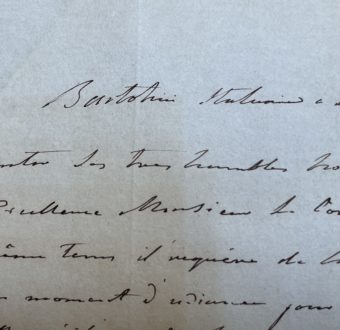 Bartolini Statuaire a
ses tres humbles
Excellence Monsieur le Co
même tems il requiére de la
moment d'udiance pour